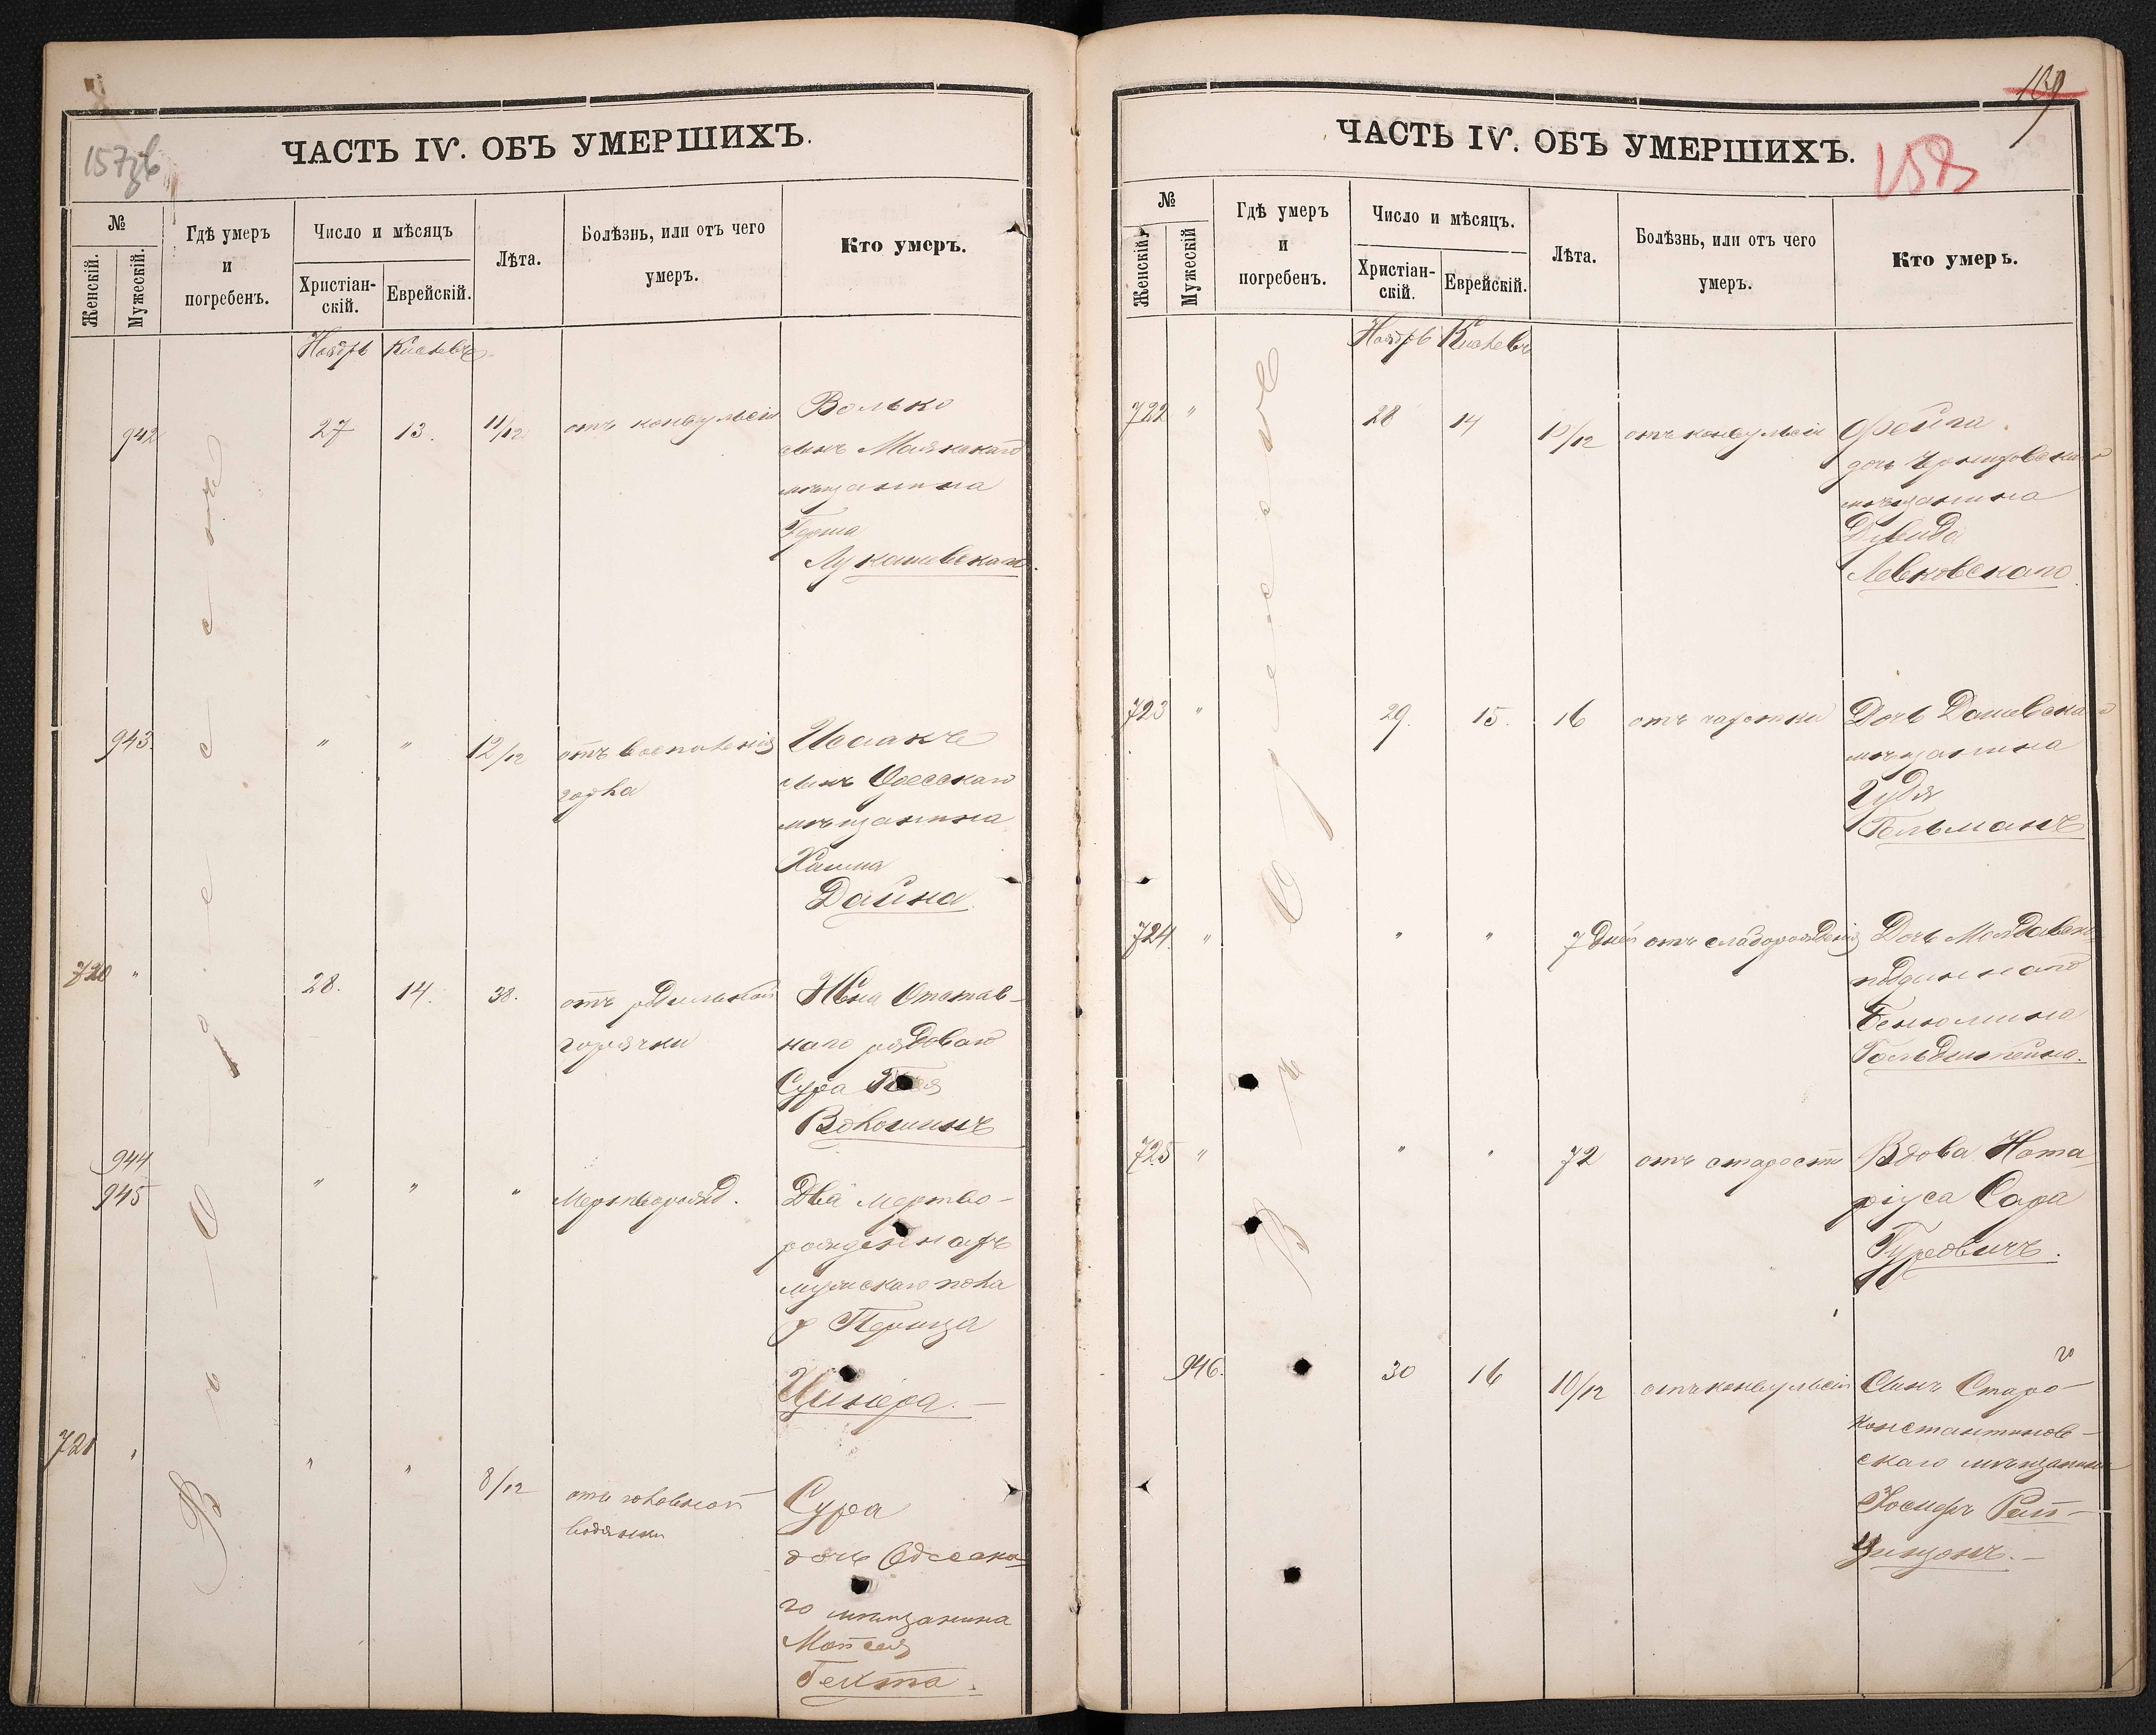 157зв
ЧАСТЬ IV. ОБЪ УМЕРШИХЪ.
№
Женскій.
Мужескій.
Гдѣ умеръ
и
погребенъ.
Число и мѣсяцъ
Христіан-
скій.
Еврейскій.
Лѣта.
Болѣзнь, или отъ чего
умеръ.
Кто умеръ.
Ноябрь Кислевъ
Въ Одессѣ
942 27 13. 11/12 отъ конвульсіи Волько
сынъ Маякскаго
мѣщанина
Герша
Лукашевскаго.
943. " " 12/12 отъ воспаленія Исаакъ
горла сынъ Одесскаго
мѣщанина
Хаима
Дайна.
720 " 28. 14. 38. отъ родильной Жена Отстав-
горячки наго рядоваго
Сура
Волошинъ
944
945 " " " Мертворожд. Два мертво-
рожденныхъ
мужскаго пола
у Перица
721 " " " 8/12 отъ головной Сура
водянки дочь Одесска-
го мѣщанина
Мойсея
Гехта.
159
158
ЧАСТЬ IV. ОБЪ УМЕРШИХЪ.
№
Женскій.
Мужескій
Гдѣ умеръ
и
погребенъ.
Число и мѣсяцъ.
Христіан-
скій.
Еврейскій.
Лѣта.
Болѣзнь, или отъ чего
умеръ.
Кто умеръ.
Ноябрь Кислевъ
Въ Одессѣ
722 " 28 14 10/12 отъ конвульсіи Фейга
дочь Черниговскаго
мѣщанина
Дувида
Левковскаго.
723 " 29. 15. 16 отъ чахотки Дочь Дашевскаго
мѣщанина
Гольманъ
724. " " " 7 дней отъ слаборожденія Дочь Молдавско-
подданнаго
Бенюмина
Гольдштейна.
725 " " " 72 отъ старости Вдова Нота-
ріуса Сара
Гуровичъ.
946. 30 16 10/12 отъ конвульсіи Сынъ Старо-
константинов-
скаго мѣщанина
Іосифъ